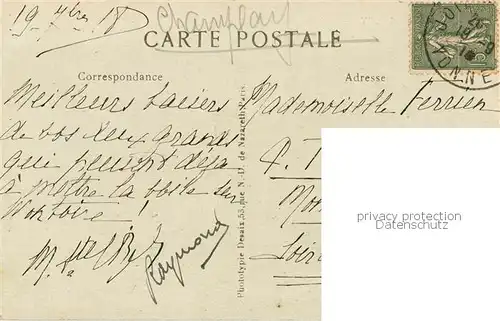 19 7bre 18
Champlay
CARTE POSTALE
Correspondance
Adresse
Meilleurs baisers
de vos deux grands
qui pensent déjà
à mettre la voile sur
Raymond
Mademoiselle Ferrier
P. T
Loir
Phototypie Desaix 53, rue N.-D. de Nazareth Paris
privacy protection
Datenschutz